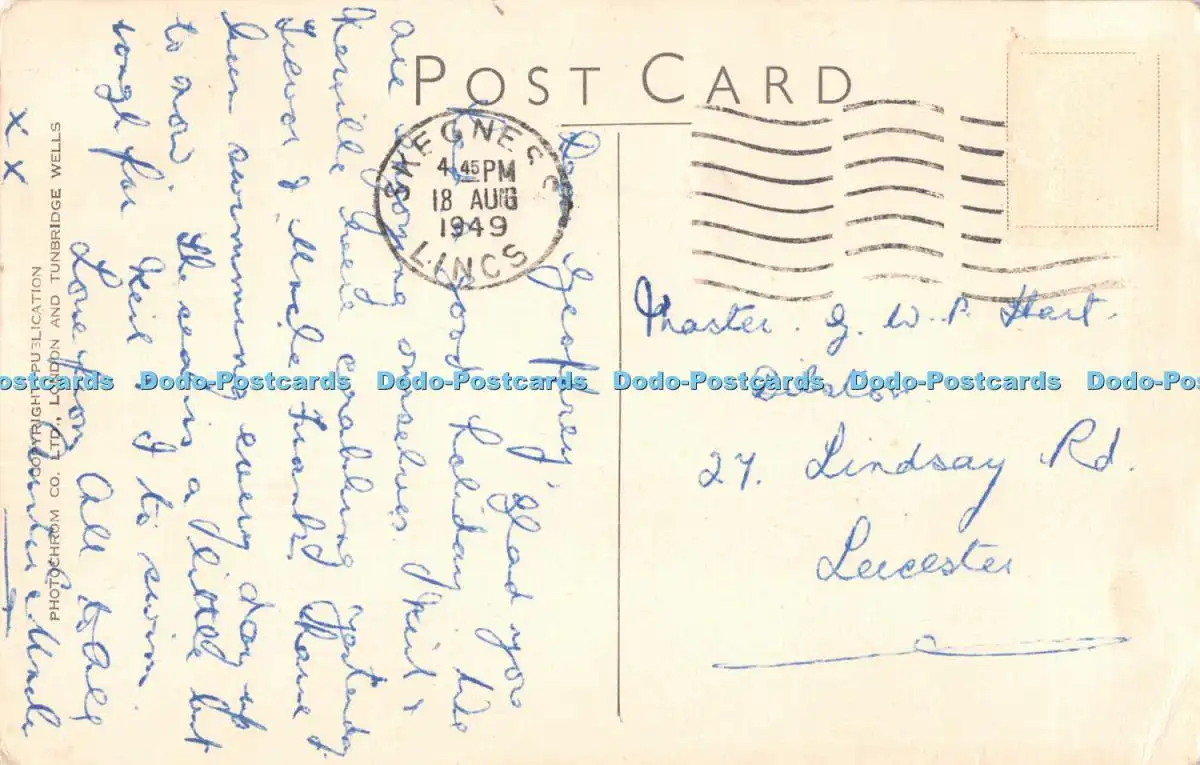 POST CARD
SKEGNESS
4 45 PM
18 AUG
1949
LINCS
Dear Geoffrey, Glad you
had a good holiday. We
are enjoying ourselves. Neil &
Neville have crabbing yesterday
Trevor & Uncle Frank have
been swimming every day up
to now. The sea is a little but
rough for Neil & I to swim.
Love from All to all
Auntie & Uncle
x x
Master. G. W. P. Hart.
27. Lindsay Rd.
Leicester
COPYRIGHT PUBLICATION
PHOTOCHROM CO. LTD., LONDON AND TUNBRIDGE WELLS
Dodo-Postcards Dodo-Postcards Dodo-Postcards Dodo-Postcards Dodo-Postcards